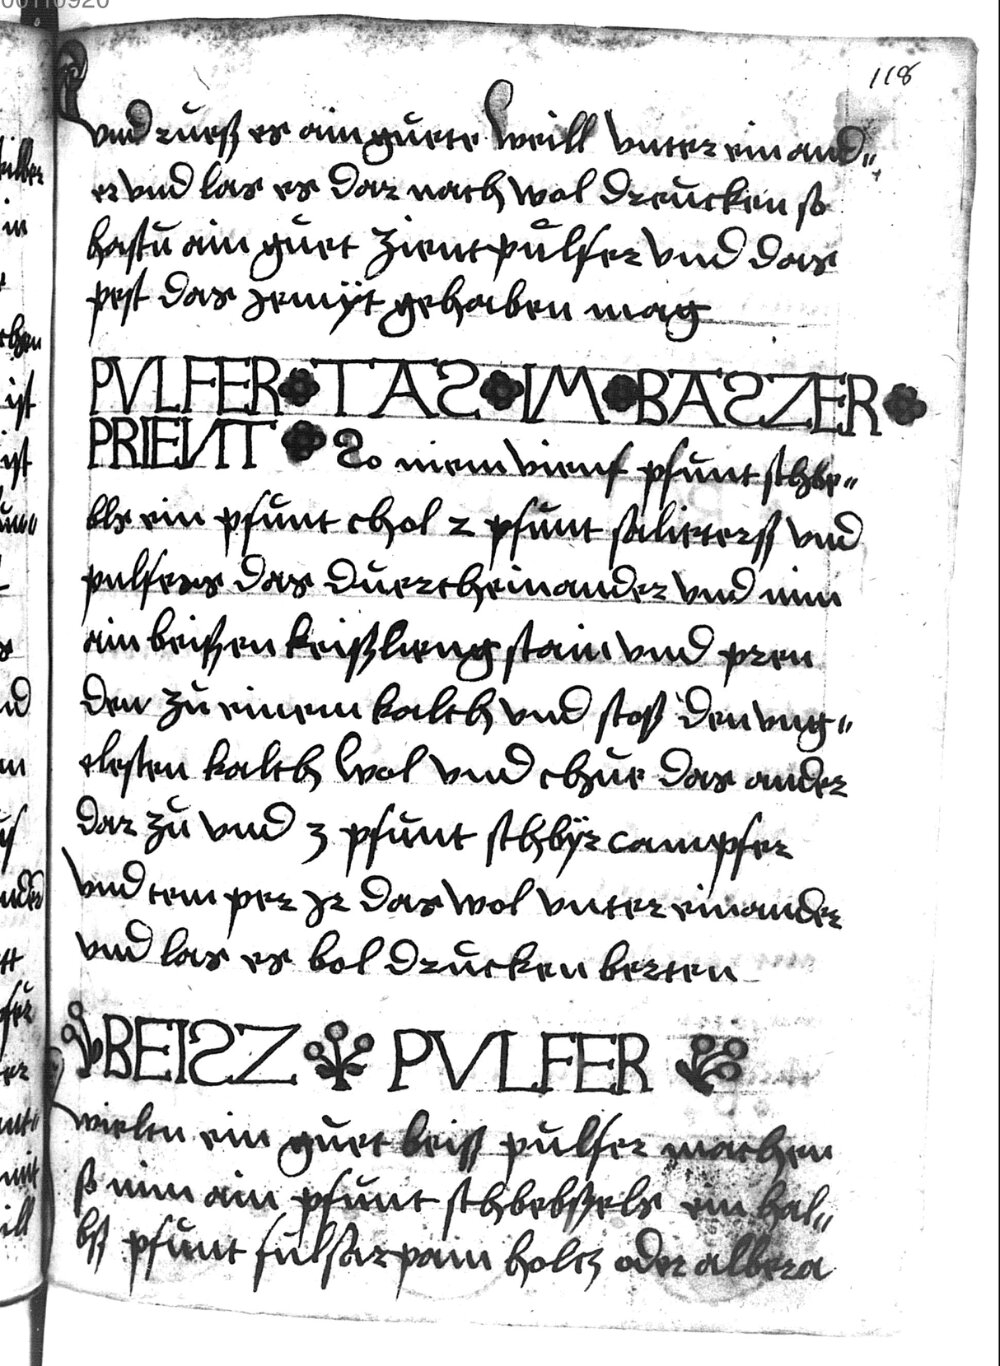 118
vnd rürß es ain guete weill vnter ein and„
er vnd las es dar nach wol drucken so
hastu ain guet zientpulfer vnd das
pest das jemÿt gehaben mag
PVLFER TAS IM BASZER
PRIENT So niem vienf pfunt schbe„
bls ein pfunt chol 2 pfunt saliterß vnd
pulfers das duercheinander vnd nim
ain beissen keißlieng stain vnd pren
den zu einem kalch vnd stoß den vng„
elesten kalch wol vnd chue das ander
dar zu vnd 3 pfunt schbÿr campfer
vnd temper jr das wol vnter einander
vnd las es bol drucken berten
BEISZ PVLFER
wieltu ein guet beiß pulfer machen
so nim ain pfunt schbebßels ein hal„
bß pfunt holtz oder albera